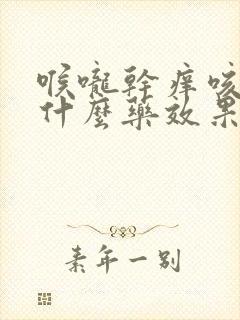 喉嚨幹痒咳
什麼藥效果
素年一别